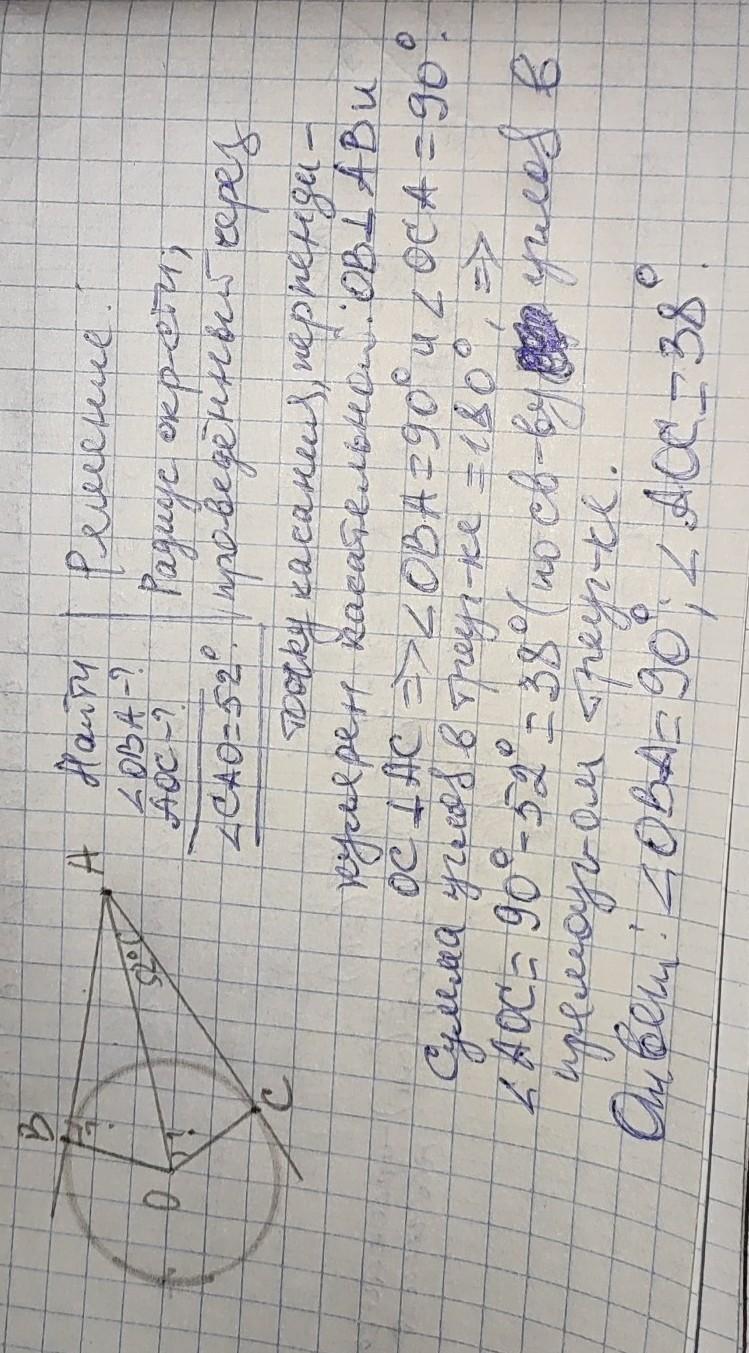 B
A
O
C
52°
?
?
Найти
∠OBA-?
AOC-?
∠CAO=52°.
Решение:
Радиус окр-сти,
проведённый через
точку касания, перпенди-
кулярен касательной: OB⊥AB и
OC⊥AC => ∠OBA=90° и ∠OCA=90°.
Сумма углов в треуг-ке =180°, =>
∠AOC=90°-52°=38° (по св-ву углов в
прямоуг-ом треуг-ке.
Ответ: ∠OBA=90°; ∠AOC=38°.